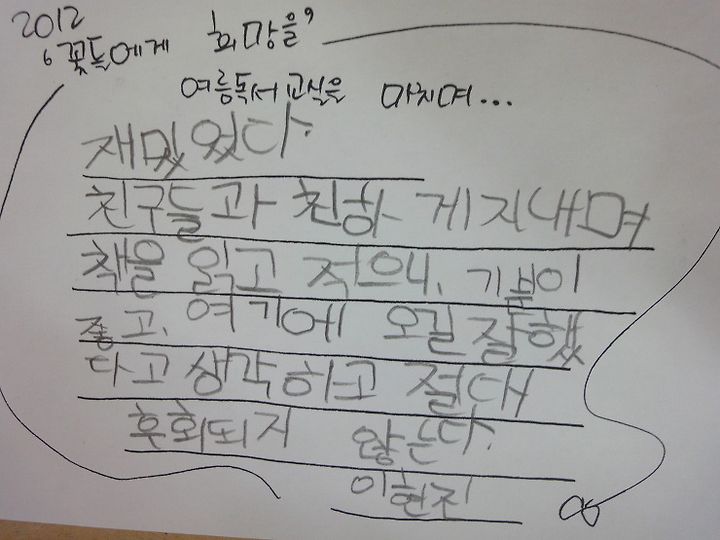 2012
"꽃들에게 희망을"
여름독서교실을 마치며...
재밌었다.
친구들과 친하게지내며
책을 읽고 적으니, 기분이
좋고, 여기에 오길 잘했
다고 생각하고 절대
후회되지 않는다.
이현진